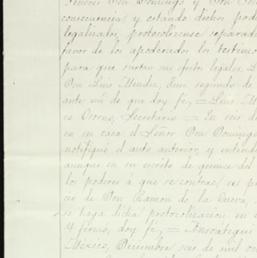 Señores Don Domingo y Don
consecuencia y estando dichos pod
legalizados, protocolícense separada
favor de los apoderados los testimo
para que surtan sus efectos legales. L
Don Luis Mendez, Juez segundo de
ante mí de que doy fe, = Luis M
Orozco, Secretario = En seis d
en su casa el Señor Don Domingo
notifiqué el auto anterior y entend
aunque en su escrito de quince del
los poderes á que se contrae
cio de Don Ramon de la Cueva,
se haga dicha protocolizacion en
y firmó, doy fe, =
México, Diciembre seis de mil oc